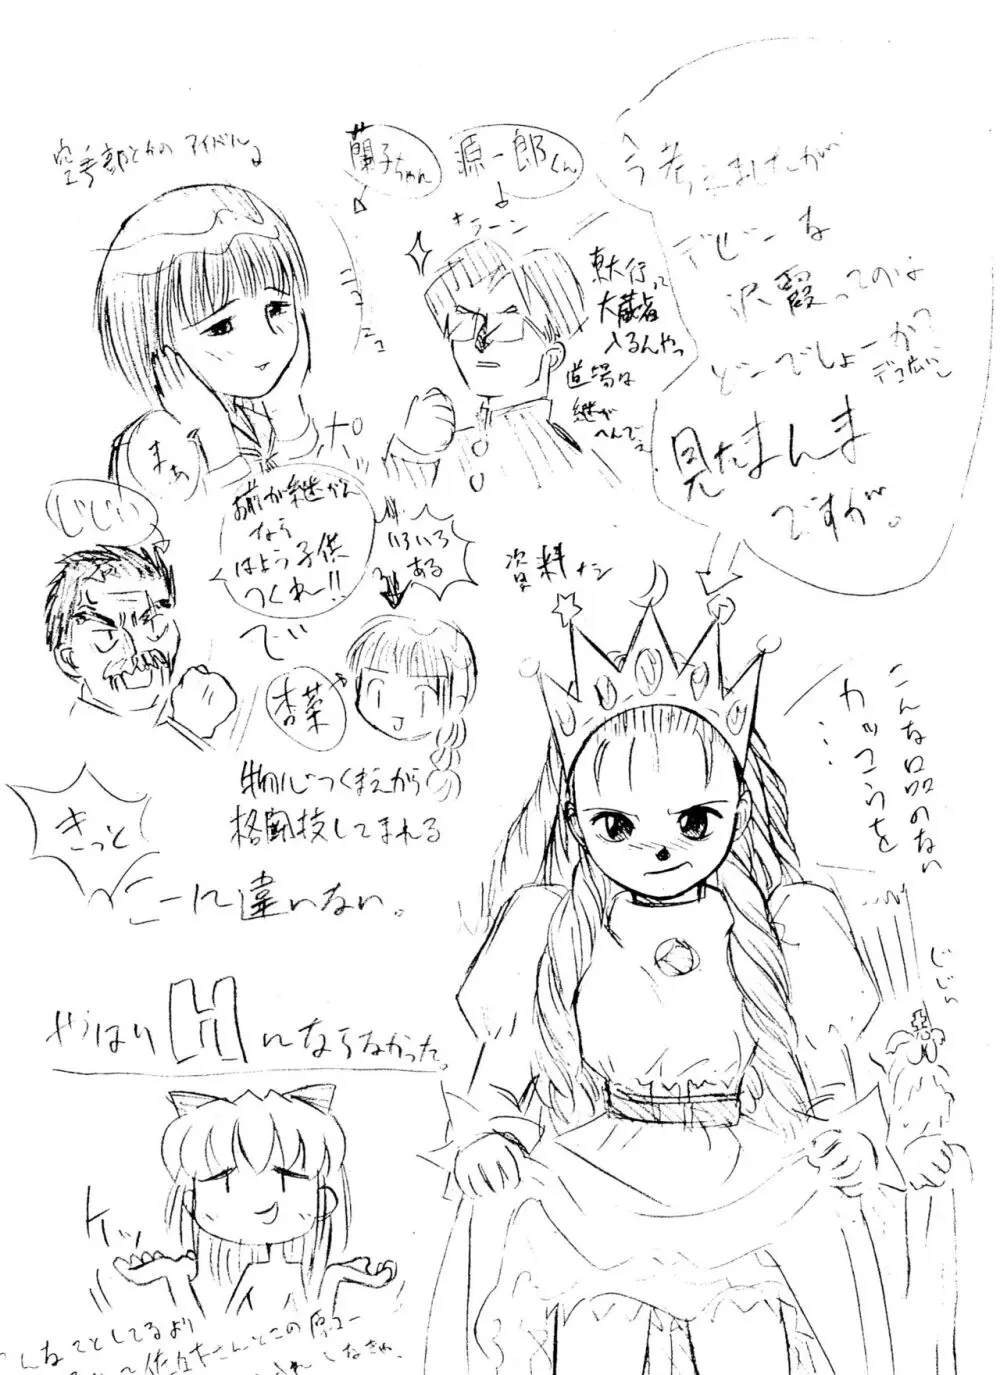 今考えましたが
デビーな
沢霞ってのは
どーでしょーか?
デコ広いし
見たまんま
ですが。
源一郎くん
蘭子ちゃん
空手部とかのアイドル
キラーン
東大行って
大蔵省
入るんやっ
道場は
継がへんでっ
ニュニュ
ポッ
まぁ
じじい
お前が継がん
なら
はよう子供
つくれー!!
いろいろ
ある
で
杏菜
資料ナシ
物心つくまえから
格闘技してまれる
きっと
こーに違いない。
こんな品のない
カッコウを
…
じじい
やはりHにならなかった。
ケッ
こんなことしてるより
佐々木さんとこの原コー